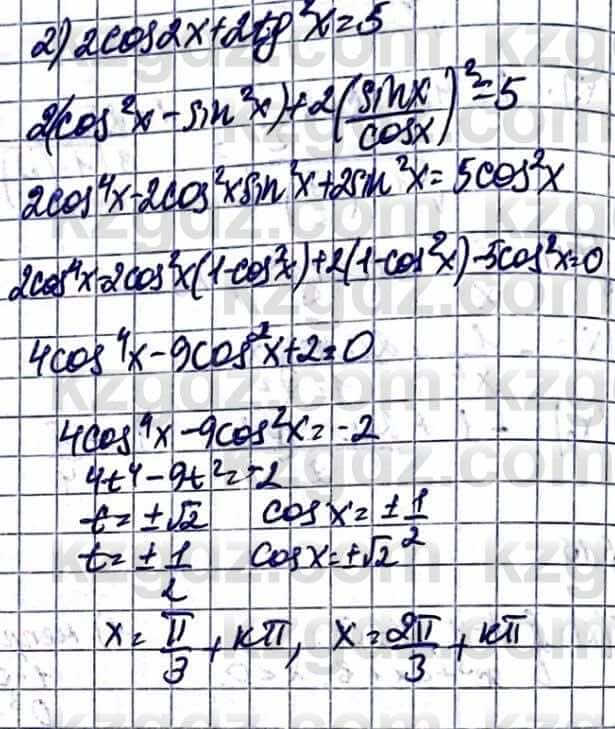 2) 2cos2x+2tg²x=5
2(cos²x-sin²x)+2(sinx/cosx)²=5
2cos⁴x-2cos²xsin²x+2sin²x=5cos²x
2cos⁴x-2cos²x(1-cos²x)+2(1-cos²x)-5cos²x=0
4cos⁴x-9cos²x+2=0
4cos⁴x-9cos²x=-2
4t⁴-9t²=-2
t=±√2 cosx=±1/2
t=±1/2 cosx=±√2
x=π/3, кπ, x=2π/3, кπ